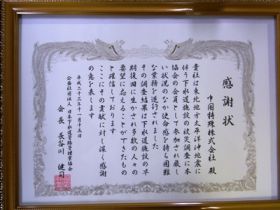 感謝状
中国特殊株式会社 殿
貴社は東北地方太平洋沖地震に
伴う下水道施設の被災調査に本
協会の会員として参加され厳し
い状況のなか使命感を持ち困難
な業務を遂行されました
その調査結果は下水道施設の早
期復旧に生かされ多数の人々の
要望に応えることができたもの
と確信しております
ここにその貢献に対し深く感謝
の意を表します
平成二十三年十一月十五日
公益社団法人 日本下水道管路管理業協会
会長 長谷川 健司